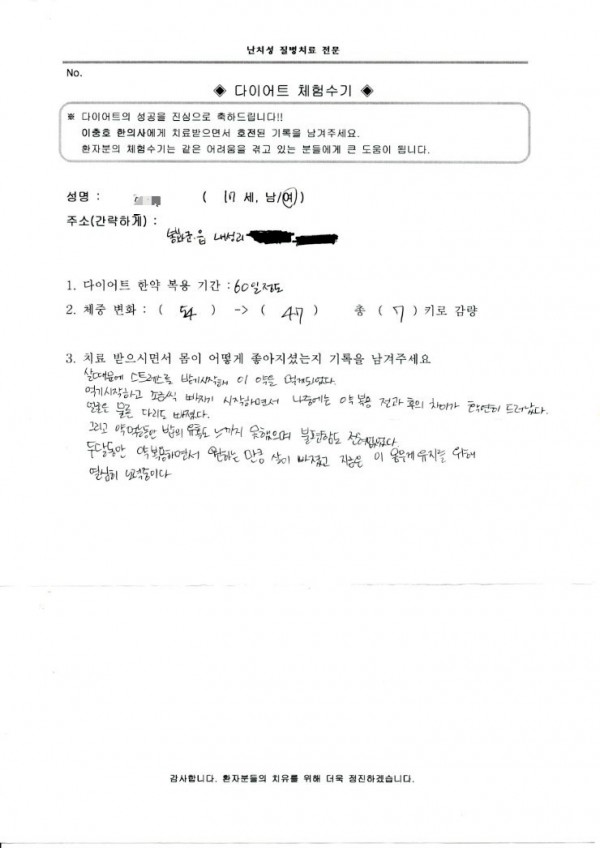 난치성 질병치료 전문
No.
◈ 다이어트 체험수기 ◈
※ 다이어트의 성공을 진심으로 축하드립니다!!
이충호 한의사에게 치료받으면서 호전된 기록을 남겨주세요.
환자분의 체험수기는 같은 어려움을 겪고 있는 분들에게 큰 도움이 됩니다.
성명 : ( 17 세, 남/여)
주소(간략하게) :
봉화군.읍 내성리
1. 다이어트 한약 복용 기간 : 60일정도
2. 체중 변화 : ( 54 ) -> ( 47 ) 총 ( 7 ) 키로 감량
3. 치료 받으시면서 몸이 어떻게 좋아지셨는지 기록을 남겨주세요
살때문에 스트레스를 받기시작해 이 약을 먹게되었다.
먹기시작하고 조금씩 빠지기 시작하면서 나중에는 약 복용 전과 후의 차이가 확연히 드러났다.
얼굴은 물론 다리도 빠졌다.
그리고 약 먹는동안 밥의 유혹도 느끼지 못했으며 불편함도 전혀없었다.
두달동안 약복용하면서 원하는 만큼 살이 빠졌고 지금은 이 몸무게 유지를 위해
열심히 노력중이다
감사합니다. 환자분들의 치유를 위해 더욱 정진하겠습니다.